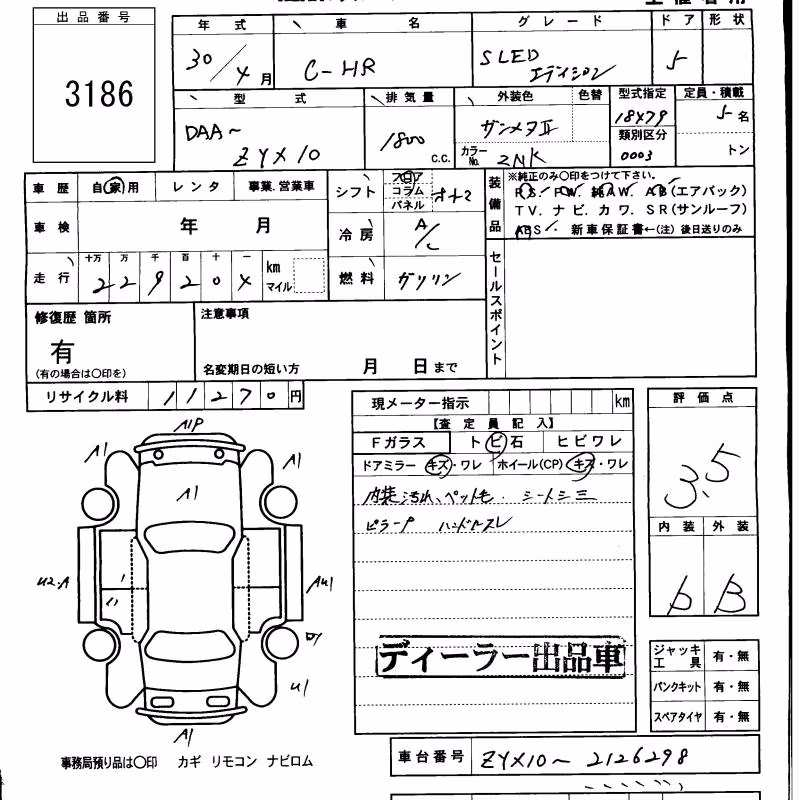 出品番号
3186
年式 車名 グレード ドア 形状
30/4月 C-HR S LED エディション 5
型式 排気量 外装色 色替 型式指定 定員・積載
DAA~ ZYX10 1800 c.c. ガンメタII 18479 5名
カラーNo. 2NK 類別区分 0003 トン
車歴 自家用 レンタ 事業.営業車
シフト フロア コラム パネル オートマ
装備品 ※純正のみ〇印をつけて下さい。
P.S. P.W. 純A.W. A.B(エアバック)
TV. ナビ. カワ. SR(サンルーフ)
ABS 新車保証書←(注)後日送りのみ
車検 年 月
冷房 A/C
走行 十万 万 千 百 十 一 km マイル
2 2 9 2 0 4
燃料 ガソリン
セールスポイント
修復歴 箇所
有
(有の場合は〇印を)
注意事項
名変期日の短い方 月 日まで
リサイクル料 11270円
現メーター指示 km
【査定員記入】
Fガラス トビ石 ヒビワレ
ドアミラー キズ・ワレ ホイール(CP) キズ・ワレ
内装汚れ、ペット毛 シートシミ
ピラーP ハンドルスレ
ディーラー出品車
評価点
3.5
内装 外装
D B
ジャッキ工具 有・無
パンクキット 有・無
スペアタイヤ 有・無
A1P
A1 A1
A1
U2.A AU1
U1
A1
事務局預り品は〇印 カギ リモコン ナビロム
車台番号 ZYX10~2126298